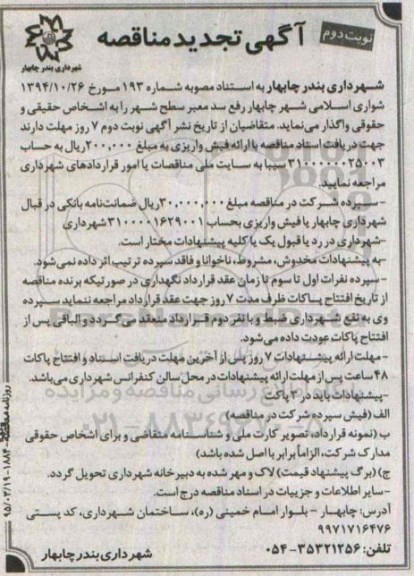 نوبت دوم
آگهی تجدید مناقصه
شهرداری بندر چابهار
شهرداری بندر چابهار به استناد مصوبه شماره ۱۹۳ مورخ ۱۳۹۴/۱۰/۲۶
شورای اسلامی شهر چابهار رفع سد معبر سطح شهر را به اشخاص حقیقی و
حقوقی واگذار می‌نماید. متقاضیان از تاریخ نشر آگهی نوبت دوم ۷ روز مهلت دارند
جهت دریافت اسناد مناقصه با ارائه فیش واریزی به مبلغ ۲۰۰,۰۰۰ ریال به حساب
سیبا به سایت ملی مناقصات یا امور قراردادهای شهرداری
مراجعه نمایید.
-سپرده شرکت در مناقصه مبلغ ۳۰,۰۰۰,۰۰۰ریال ضمانت‌نامه بانکی در قبال
شهرداری چابهار یا فیش واریزی بحساب ۳۱۰۰۰۰۱۶۲۹۰۰۱شهرداری
-شهرداری در رد یا قبول یک یا کلیه پیشنهادات مختار است.
-به پیشنهادات مخدوش، مشروط، ناخوانا و فاقد سپرده ترتیب اثر داده نمی‌شود.
-سپرده نفرات اول تا سوم تا زمان عقد قرارداد نگهداری در صورتیکه برنده مناقصه
از تاریخ افتتاح پاکات ظرف مدت ۷ روز جهت عقد قرارداد مراجعه ننماید سپرده
وی به نفع شهرداری ضبط و با نفر دوم قرارداد منعقد می‌گردد و الباقی پس از
افتتاح پاکات عودت داده می‌شود.
-مهلت ارائه پیشنهادات ۷ روز پس از آخرین مهلت دریافت اسناد و افتتاح پاکات
۴۸ ساعت پس از مهلت ارائه پیشنهادات در محل سالن کنفرانس شهرداری می‌باشد.
-پیشنهادات باید در ۳ پاکت
الف (فیش سپرده شرکت در مناقصه)
ب (نمونه قرارداد، تصویر کارت ملی و شناسنامه متقاضی و برای اشخاص حقوقی
مدارک شرکت، الزاماً برابر با اصل شده باشد)
ج) (برگ پیشنهاد قیمت) لاک و مهر شده به دبیرخانه شهرداری تحویل گردد.
-سایر اطلاعات و جزییات در اسناد مناقصه درج است.
آدرس: چابهار - بلوار امام خمینی (ره)، ساختمان شهرداری، کد پستی
۹۹۷۱۷۱۶۴۷۶
تلفن: ۳۵۳۲۱۲۵۶-۰۵۴
شهرداری بندر چابهار
۰۲۱-۸۸۳۴۹۶۷۰-۵